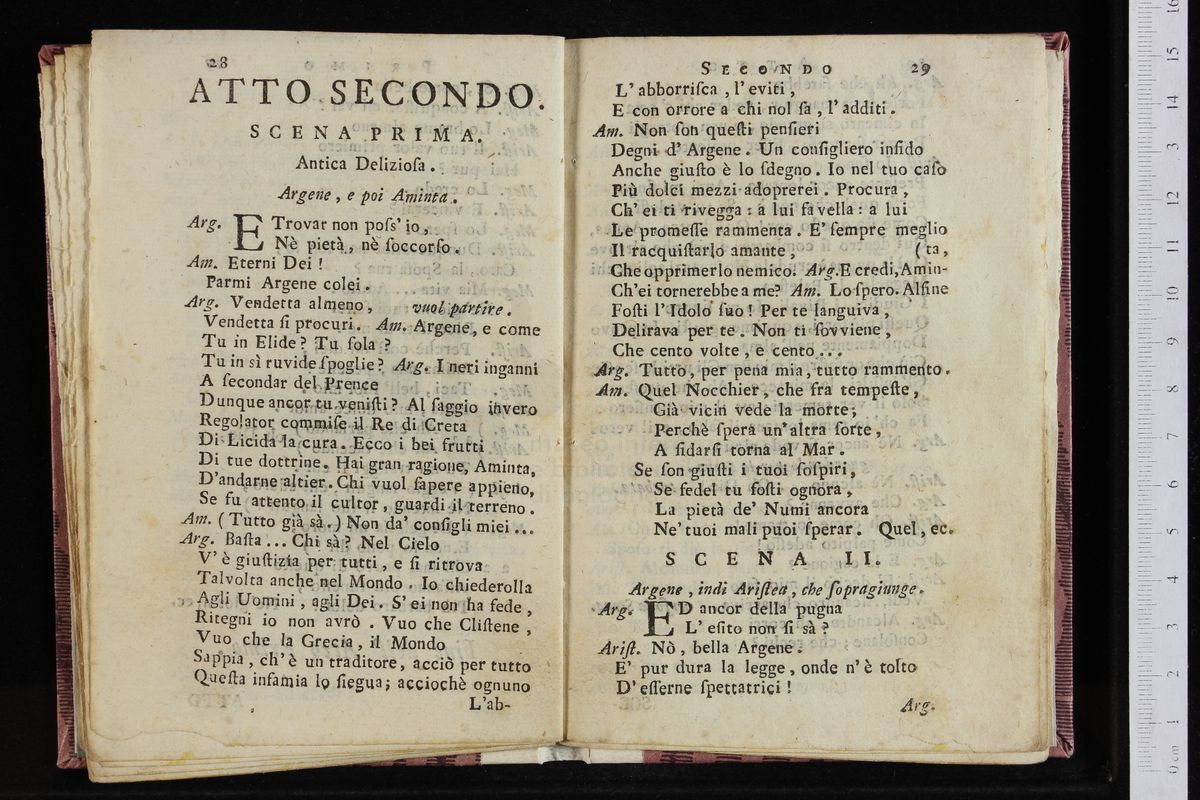 28
ATTO SECONDO.
SCENA PRIMA.
Antica Delizioſa.
Argene, e poi Aminta.
Arg. E Trovar non poſs' io,
Nè pietà, nè ſoccorſo.
Am. Eterni Dei!
Parmi Argene colei.
Arg. Vendetta almeno, vuol partire.
Vendetta ſi procuri. Am. Argene, e come
Tu in Elide? Tu ſola?
Tu in sì ruvide ſpoglie? Arg. I neri inganni
A ſecondar del Prence
Dunque ancor tu veniſti? Al ſaggio invero
Regolator commiſe il Re di Creta
Di Licida la cura. Ecco i bei frutti
Di tue dottrine. Hai gran ragione, Aminta,
D'andarne altier. Chi vuol ſapere appieno,
Se fu attento il cultor, guardi il terreno.
Am. (Tutto già sà.) Non da' conſigli miei...
Arg. Baſta... Chi sà? Nel Cielo
V' è giuſtizia per tutti, e ſi ritrova
Talvolta anche nel Mondo. Io chiederolla
Agli Uomini, agli Dei. S' ei non ha fede,
Ritegni io non avrò. Vuo che Cliſtene,
Vuo che la Grecia, il Mondo
Sappia, ch' è un traditore, acciò per tutto
Queſta infamia lo ſiegua; acciochè ognuno
L'ab-
SECONDO 29
L' abborriſca, l' eviti,
E con orrore a chi nol ſa, l' additi.
Am. Non ſon queſti penſieri
Degni d' Argene. Un conſigliero infido
Anche giuſto è lo ſdegno. Io nel tuo caſo
Più dolci mezzi adoprerei. Procura,
Ch' ei ti rivegga: a lui favella: a lui
Le promeſſe rammenta. E' ſempre meglio
Il racquiſtarlo amante, (ta,
Che opprimerlo nemico. Arg. E credi, Amin-
Ch'ei tornerebbe a me? Am. Lo ſpero. Alfine
Foſti l' Idolo ſuo! Per te languiva,
Delirava per te. Non ti ſovviene,
Che cento volte, e cento...
Arg. Tutto, per pena mia, tutto rammento.
Am. Quel Nocchier, che fra tempeſte,
Già vicin vede la morte;
Perchè ſpera un' altra ſorte,
A fidarſi torna al Mar.
Se ſon giuſti i tuoi ſoſpiri,
Se fedel tu foſti ognora,
La pietà de' Numi ancora
Ne' tuoi mali puoi ſperar. Quel, ec.
SCENA II.
Argene, indi Ariſtea, che ſopragiunge.
Arg. ED ancor della pugna
L' eſito non ſi sà?
Ariſt. Nò, bella Argene.
E' pur dura la legge, onde n' è tolto
D' eſſerne ſpettatrici!
Arg.